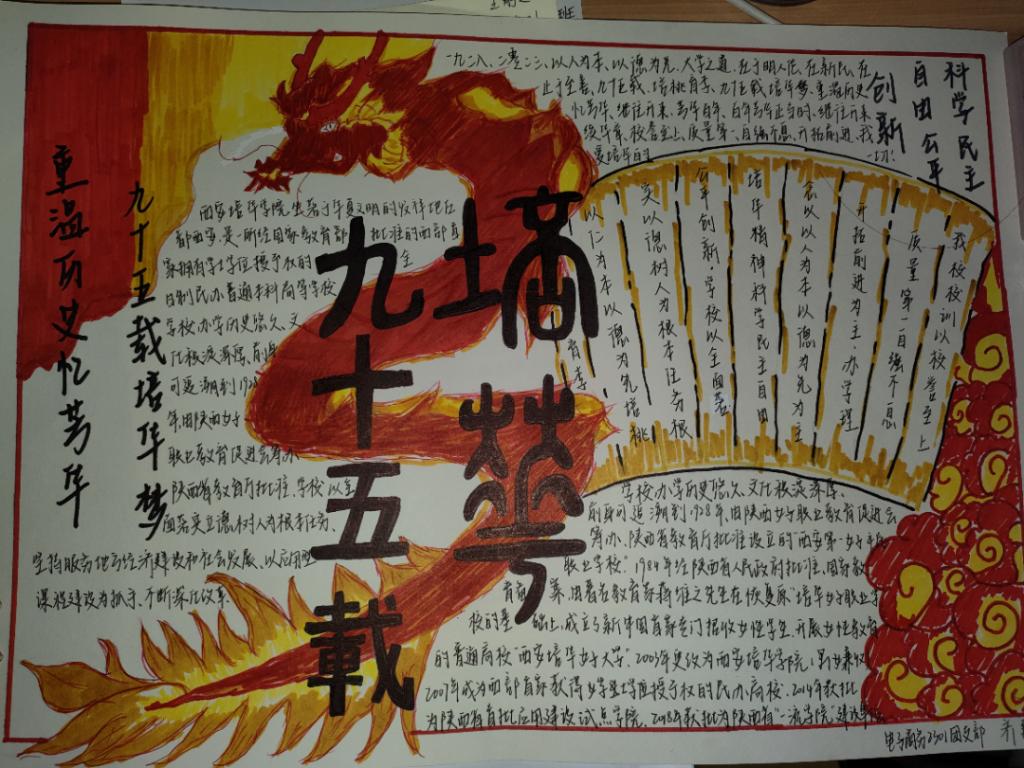 一九二八、二零二三、以人为本、以德为先、大学之道、在于明人民、在新民、在
止于至善、九十五载、培桃育李、九十五载、培华梦、重温历史
忆芳华、继往开来、芳华百年、百年芳华正当时、继往开来
续华章、校誉至上、质量第一、自强不息、开拓前进、我
爱培华的一切!
科学民主
自由公平
创新
重温历史忆芳华
九十五载培华梦
培華
九十五載
西安培华学院坐落于华夏文明的发祥地古
都西安、是一所经国家教育部批准的西部首
家拥有学士学位授予权的全
日制民办普通本科高等学校
学校办学历史悠久、文
化根波深厚、前身
可追溯到1928
年由陕西女子
职业教育促进会筹办
陕西省教育厅批准、学校以全
面落实立德树人为根本任务、
坚持服务地方经济建设和社会发展、以应用型
课程建设为抓手、不断深化改革.
我校校训以校誉至上
质量第一自强不息
开拓前进为主办学理
念以以人为本以德为先为主
培华精神科学民主自由
公平创新·学校以全面落
实以德树人为根本任务根
以仁为本以德为先培桃
育李
学校办学历史悠久、文化根波深厚、
前身可追溯到1928年、由陕西女子职业教育促进会
筹办、陕西省教育厅批准设立的"西安第一女子平民
职业学校"1984年经陕西省人民政府批准、国家教
育部备案、由著名教育家姜维之先生在恢复原"培华女子职业学
校的基础上、成立了新中国首家专门招收女性学生、开展女性教育
的普通高校"西安培华女子大学"2003年更改为西安培华学院、男女兼收
2007年成为西部首家获得学士学位授予权的民办高校、2014年获批
为陕西省首批应用建设试点学院、2018年获批为陕西省"一流学院"建设单位
电子商务2301团支部